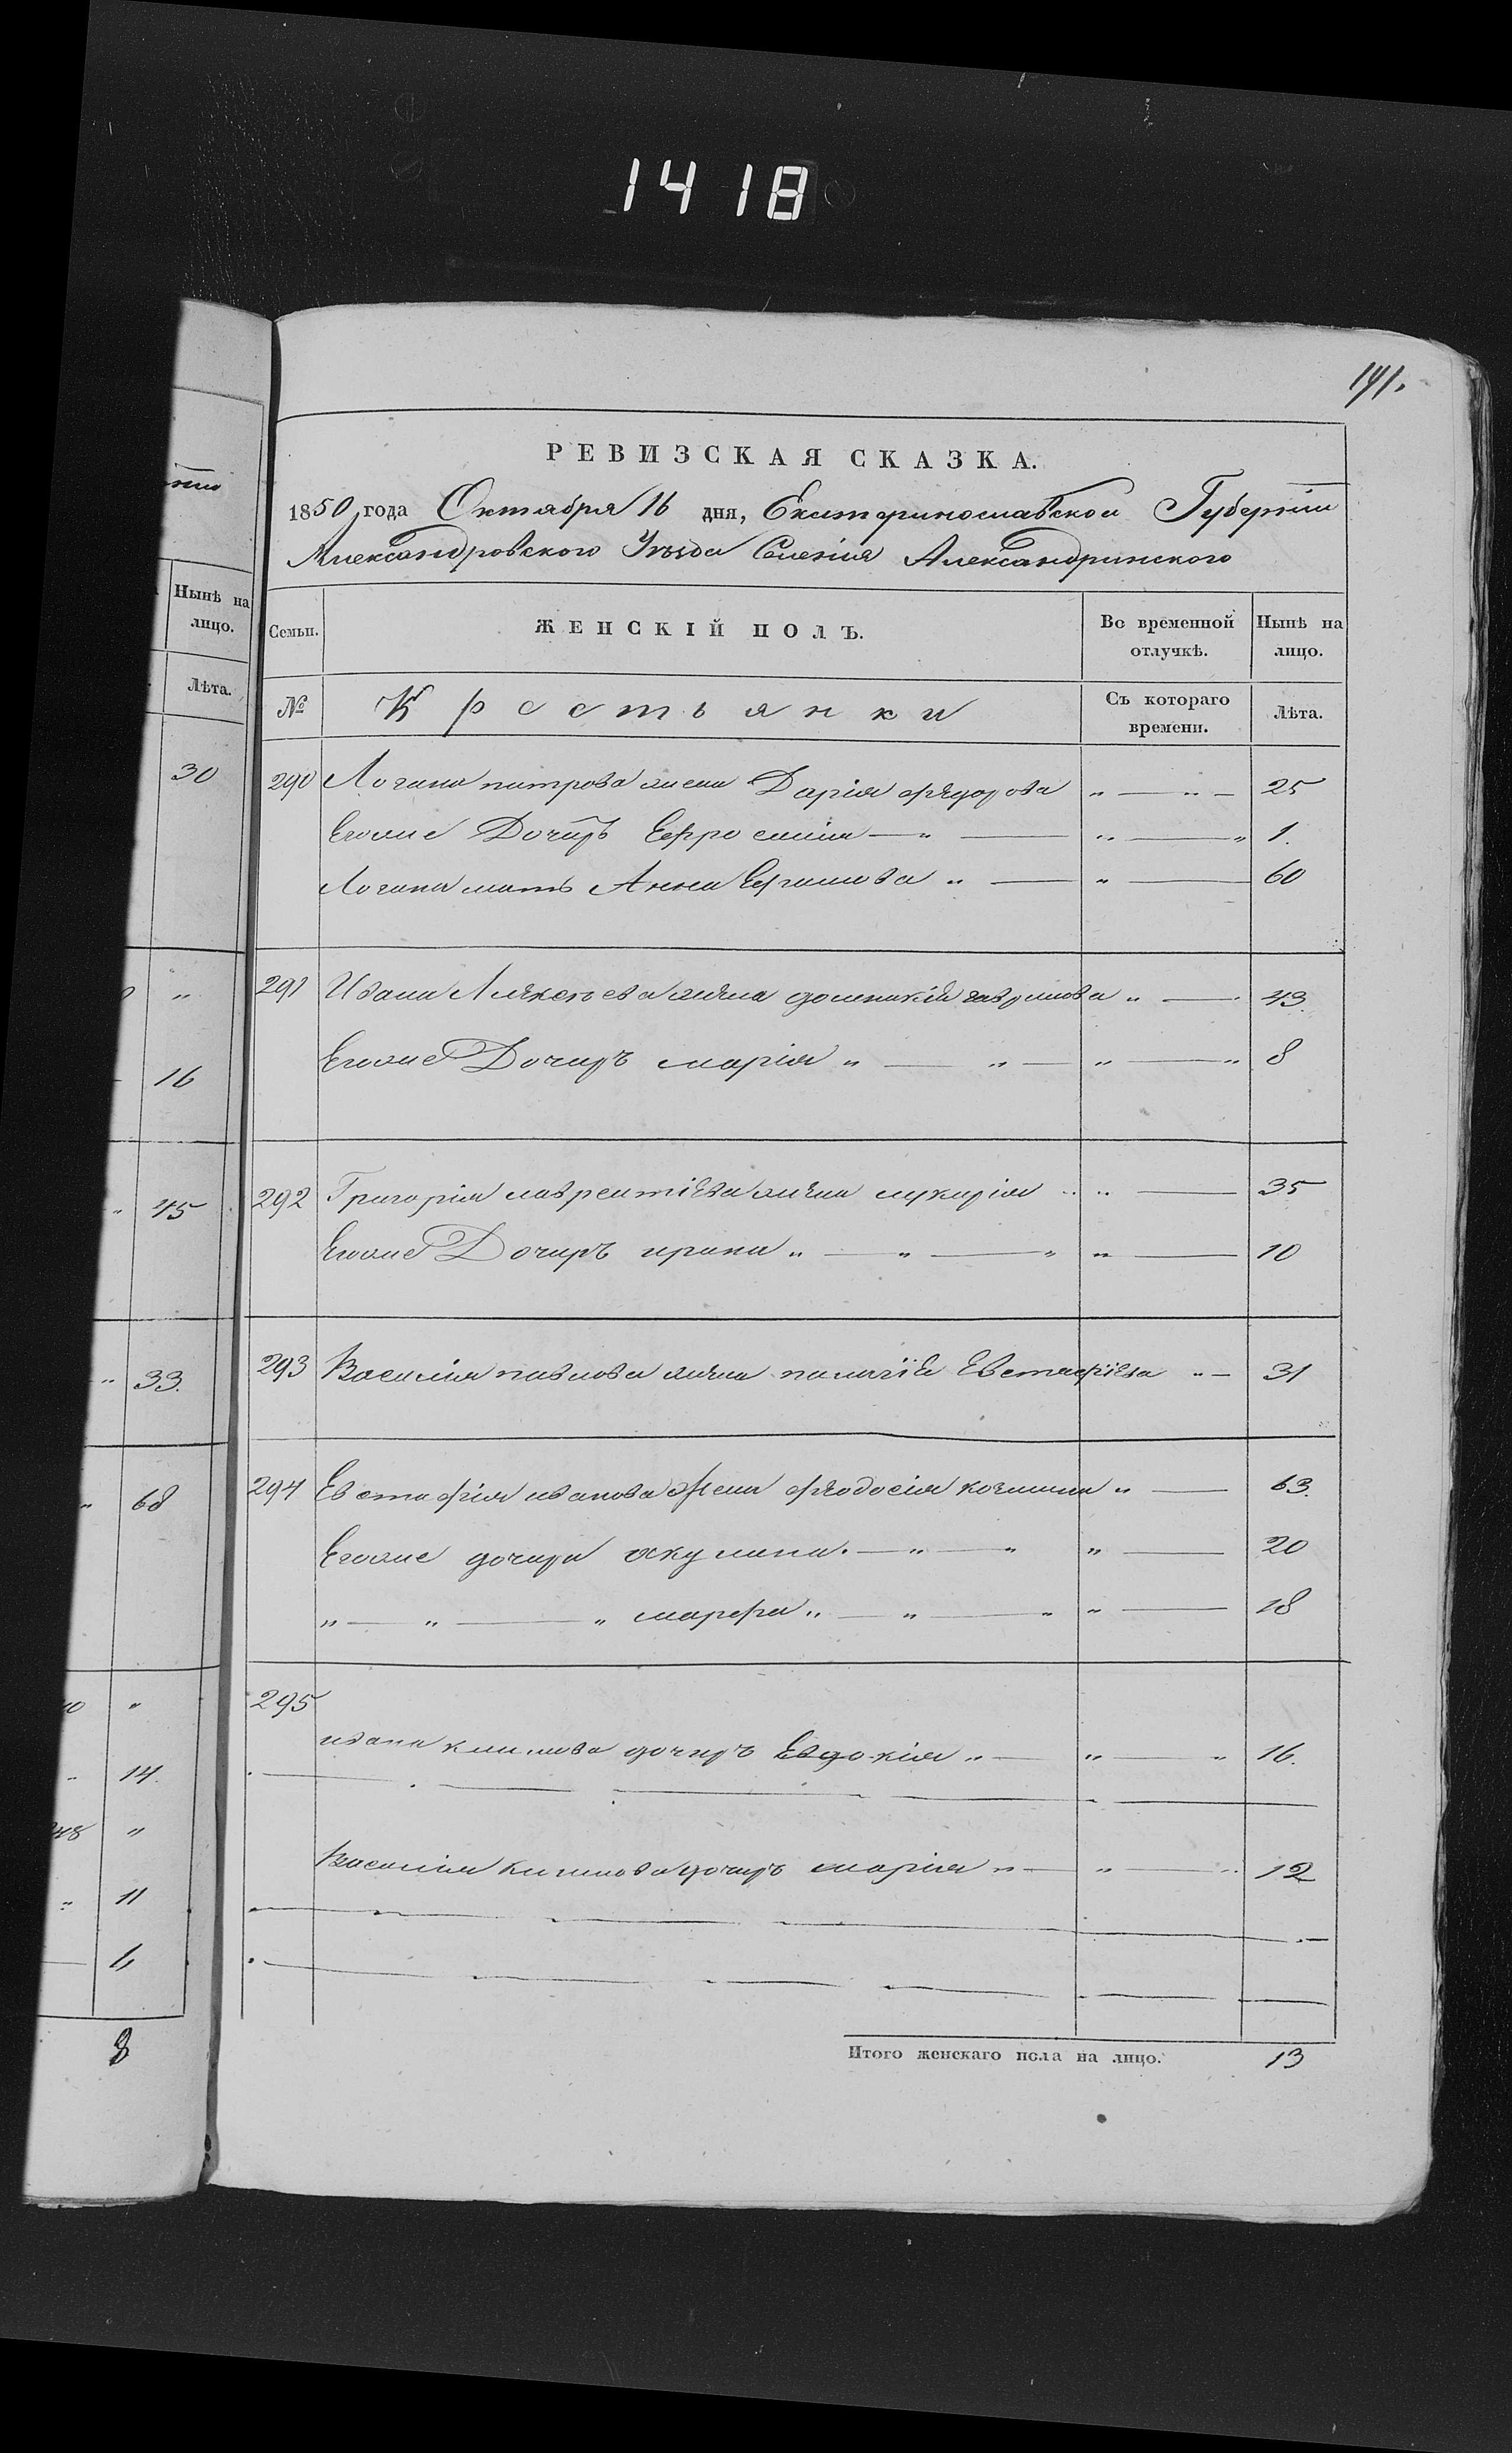 1418
141.
РЕВИЗСКАЯ СКАЗКА.
1850 года Октября 16 дня, Екатеринославской Губернии
Александровского Уезда Селения Александринского
Нынѣ на лицо.
Лѣта.
30
"
16
" 45
" 33.
" 68
10 "
14.
48 "
11
6
8
Семьи. ЖЕНСКІЙ ПОЛЪ. Во временной отлучкѣ. Нынѣ на лицо.
№ Крестьянки Съ котораго времени. Лѣта.
290 Логина петрова жена Дария Федорова " — " — 25
Егоже Дочирь Ефросинія — " — " — " 1.
Логина мать Анна " — " — 60
291 Ивана Алексеева жена домникія гаврилова " — 43.
Егоже Дочирь марія " — " — " — " 8
292 Григорія лаврентіева жена мукирія " " — 35
Егоже Дочирь ирина " — " — " " — 10
293 Василия павлова жена палагія Евстафіева " — 31
294 Евстафия иванова Жена федосия " — 63.
Егоже дочири акулина. — " — " " — 20
" — " — " марфа " — " — " " — 18
295
ивана климова дочирь Евдокия " — " — " 16.
Василия климова дочирь мария " — " — " 12
Итого женскаго пола на лицо. 13